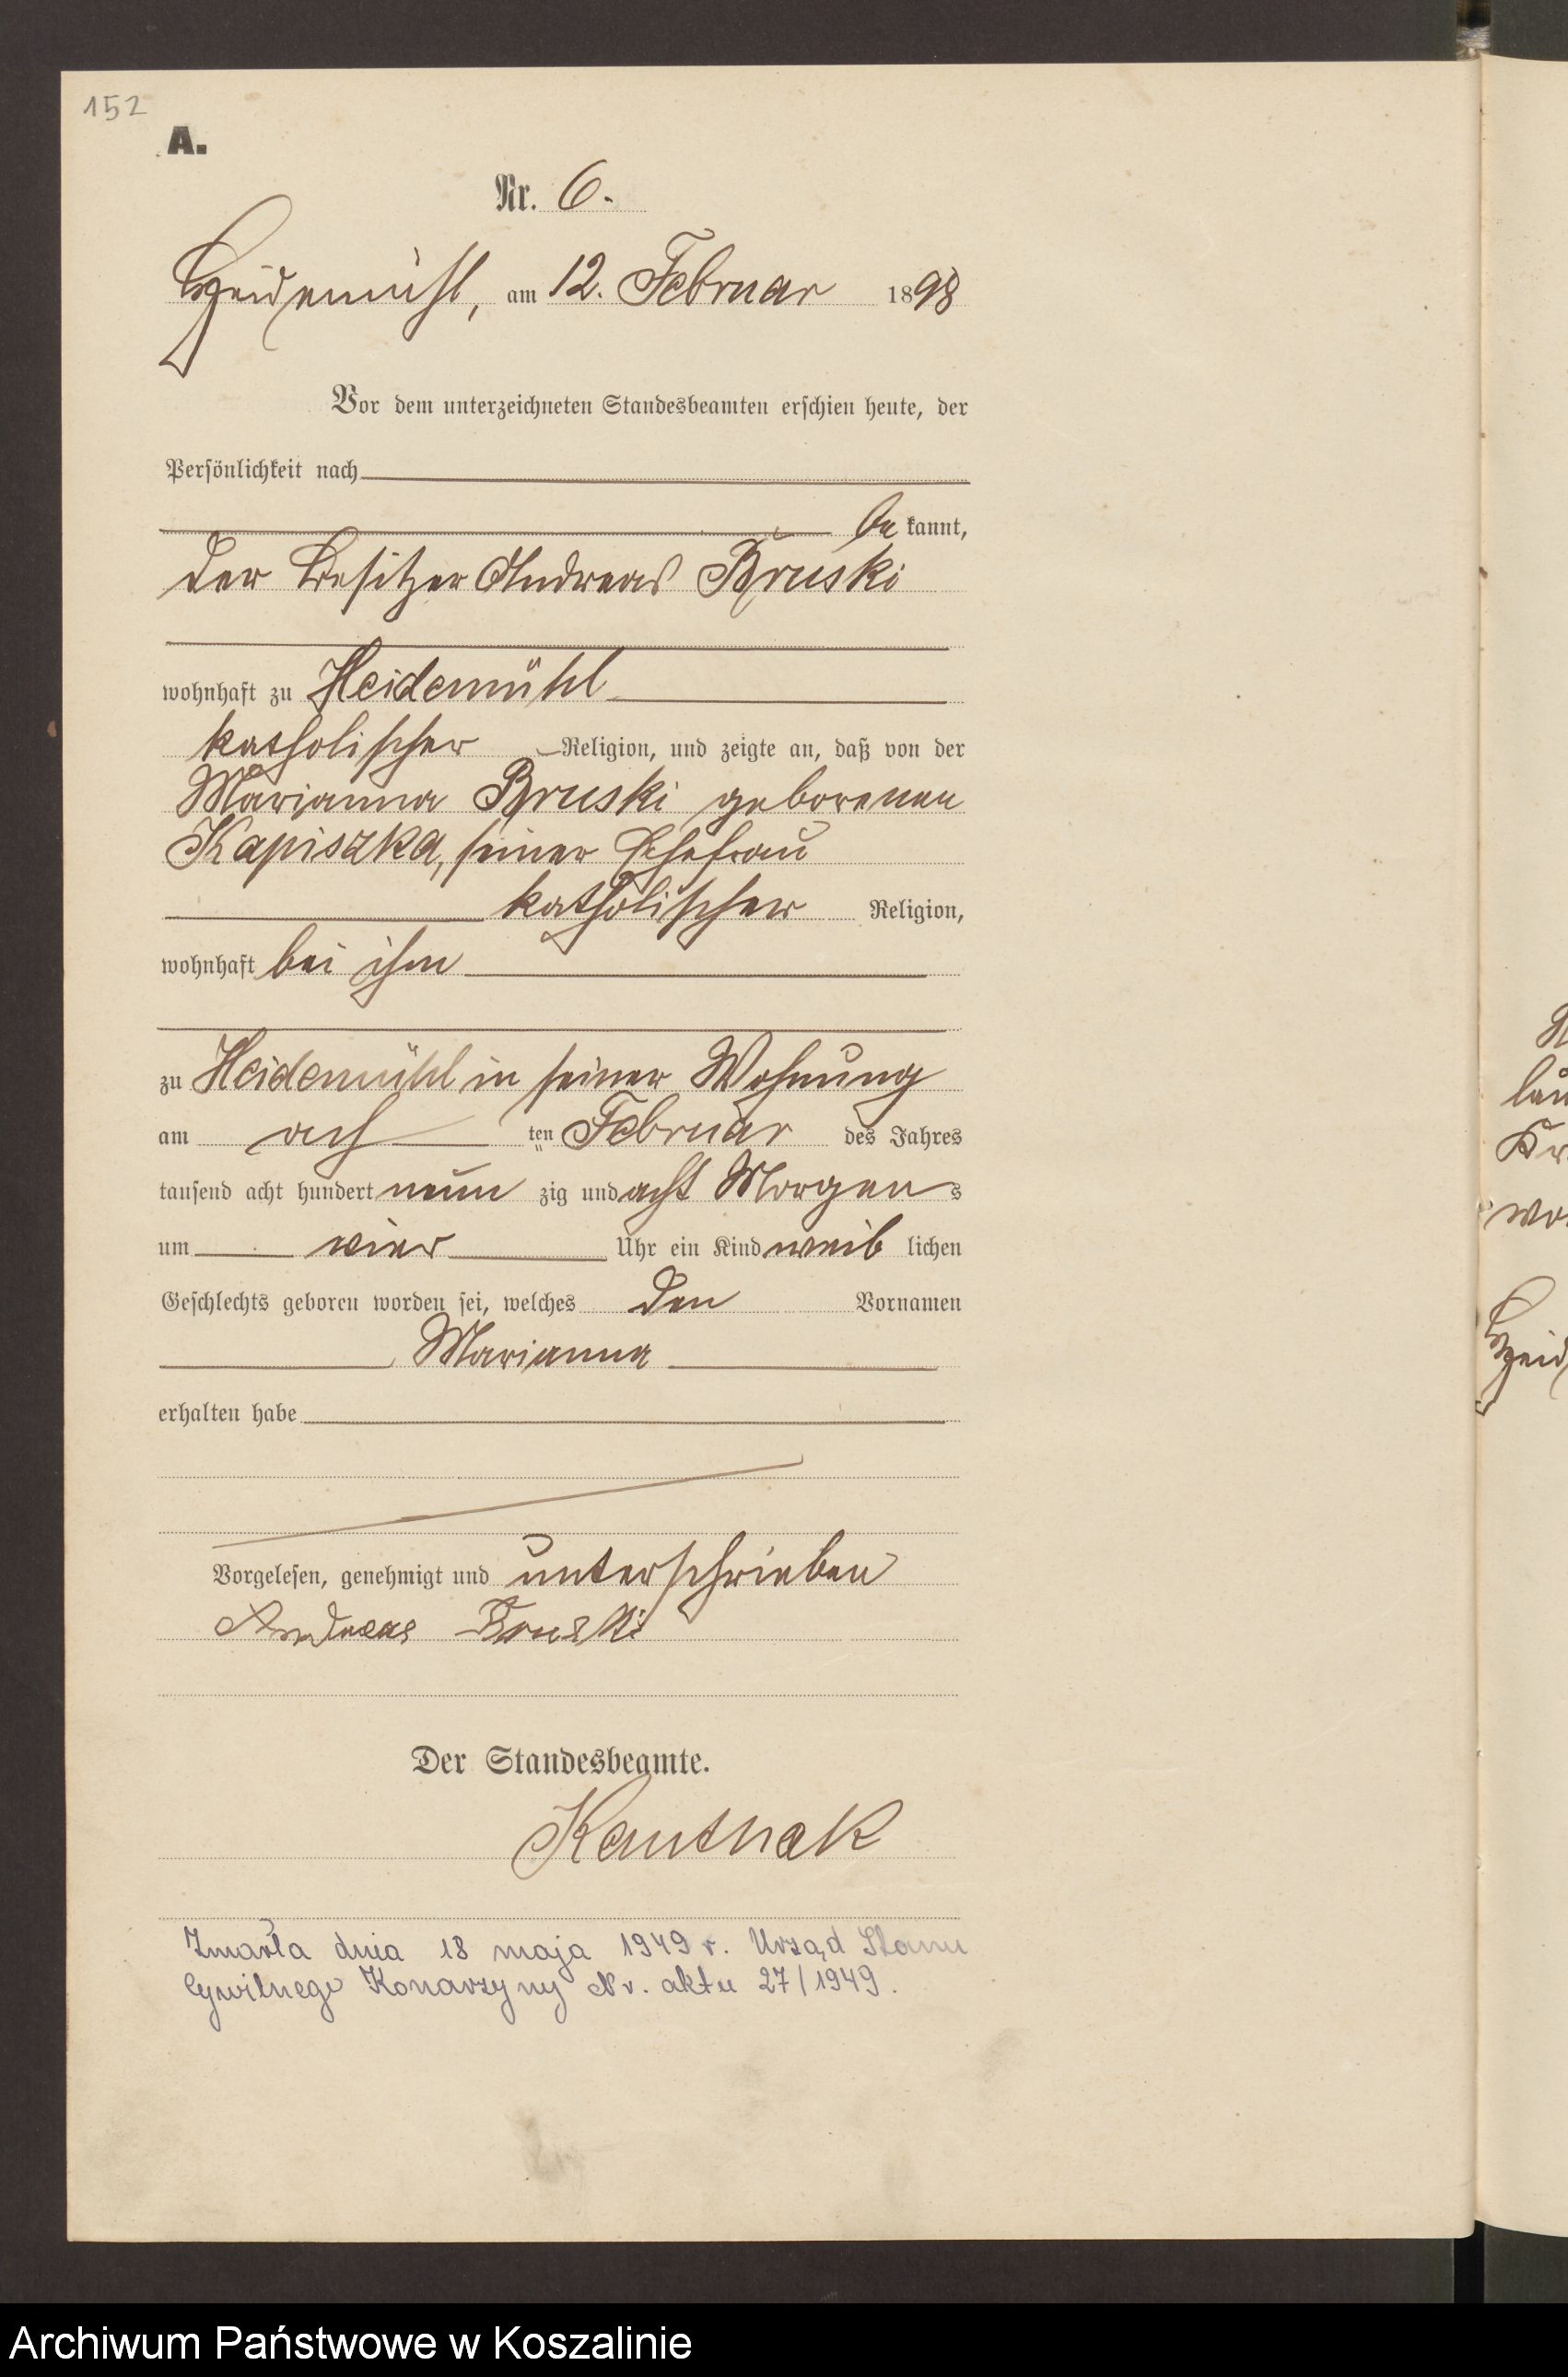 152
A.
Nr. 6.
Heidemühl, am 12. Februar 1898
Vor dem unterzeichneten Standesbeamten erschien heute, der
Persönlichkeit nach
be kannt,
der Besitzer Andreas Bruski
wohnhaft zu Heidemühl
katholischer Religion, und zeigte an, daß von der
Marianna Bruski geborenen
Kapiszka, seiner Ehefrau
katholischer Religion,
wohnhaft bei ihm
zu Heidemühl in seiner Wohnung
am ach ten Februar des Jahres
tausend acht hundert neun zig und acht Morgens
um vier Uhr ein Kind weib lichen
Geschlechts geboren worden sei, welches den Vornamen
Marianna
erhalten habe
Vorgelesen, genehmigt und unterschrieben
Andreas Bruski
Der Standesbeamte.
Kauthak
Zmarła dnia 18 maja 1949 r. Urząd Stanu
Cywilnego Konarzyny Nr. aktu 27/1949.
läu
Kr
wo
Heid
Archiwum Państwowe w Koszalinie